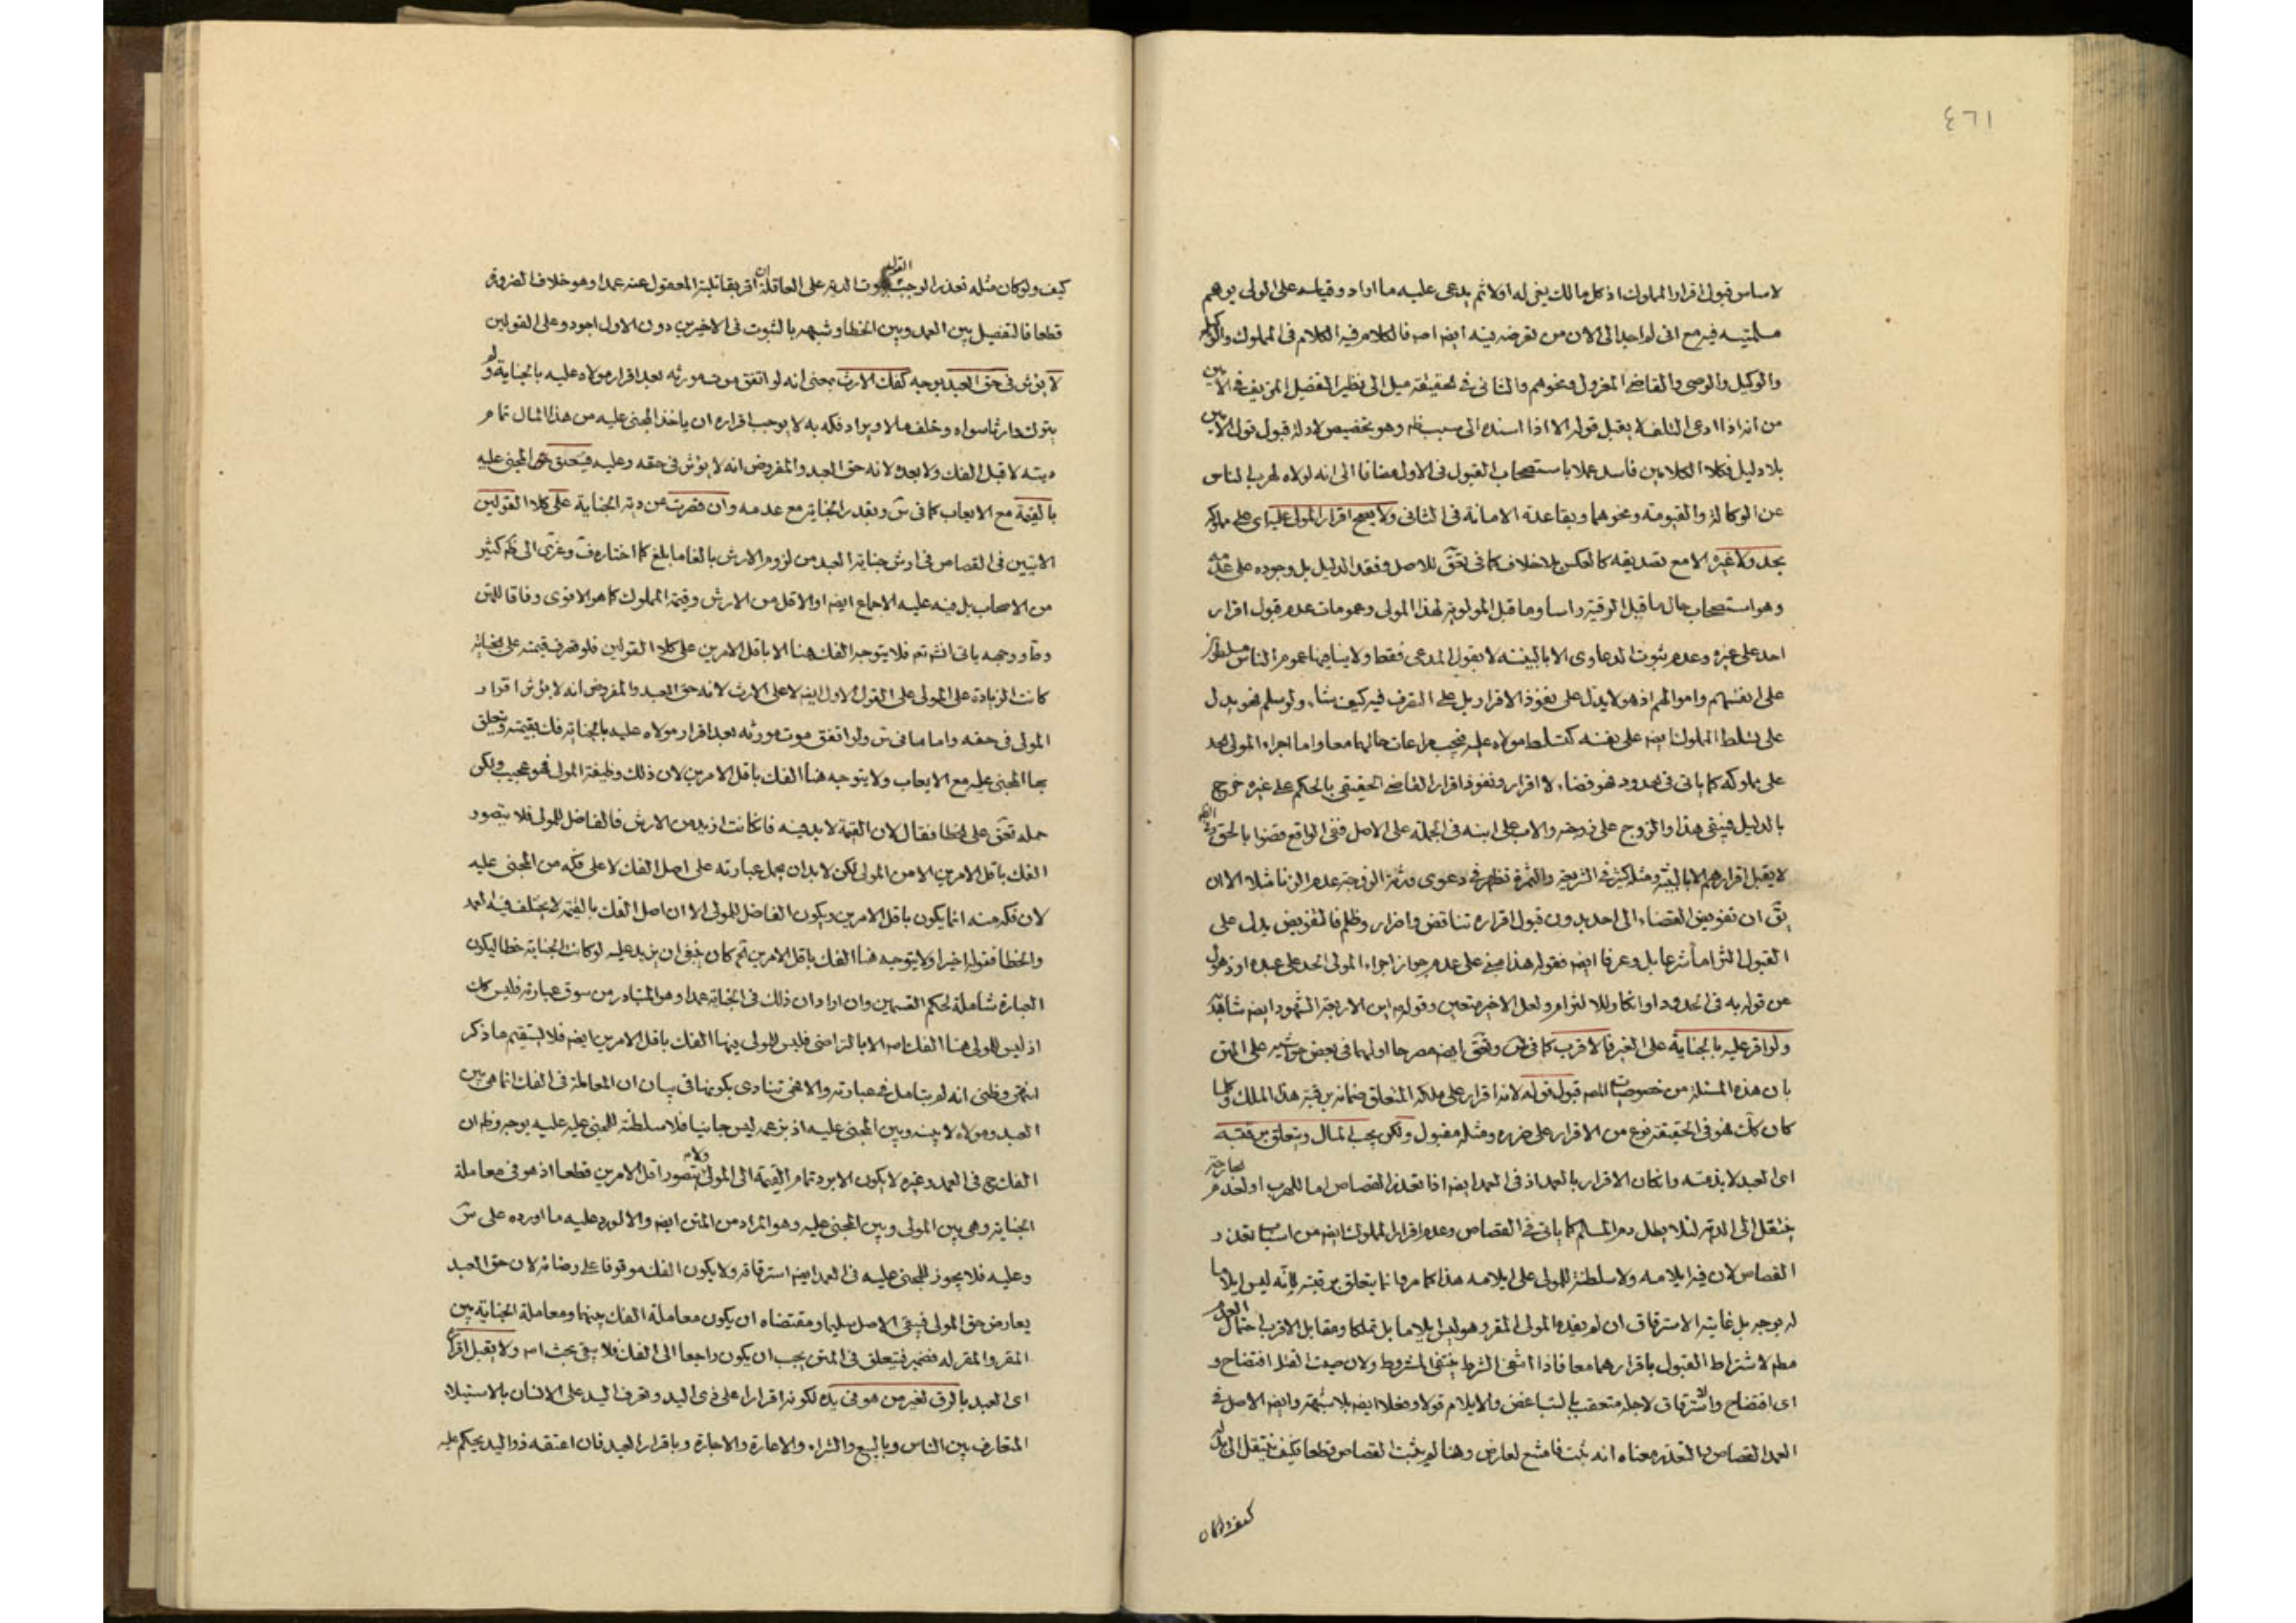 ٤٦١
لاساس قبول اقرار المملوك اذ كل مالك يقر له اولا ثم يدعى عليه ما اراد وقياسه على الولى يوهم
فيه مع انى لم اجد الى الان من تعرضه فيه ايضا فالكلام فيه الكلام فى المملوك
والوكيل والوصى والقاضى المعزول ونحوهم والثانى فى الحقيقة ميل الى نظير التفصيل المزيف فى الامين
من انه اذا ادعى التلف لا يقبل قوله الا اذا اسنده الى سبب ظ وهو تخصيص لادلة قبول قول الامين
بلا دليل فكلا الكلامين فاسد عملا باستصحاب القبول فى الاول مضافا الى انه لولاه لهرب الناس
عن الوكالة والقيمومة ونحوهما وبقاعدة الامانة فى الثانى ولا يصح اقرار المولى عليه اى على مملوكه
بحد ولا غيره الا مع تصديقه كالعكس بلا خلاف كما فى تعق للاصل وفقد الدليل بل وجوده على عدمه
وهو استصحاب حال ما قبل الرقية راسا وما قبل المولوية لهذا المولى وعمومات عدم قبول اقرار
احد على غيره وعدم ثبوت الدعاوى الا بالبينة لا بقول المدعى فقط ولا ينافيها عموم الناس مسلطون
على انفسهم واموالهم اذ هو لا يدل على نفوذ الاقرار بل على التصرف فيه كيف شاء ولو سلم فهو يدل
على تسلط المملوك ايضا على نفسه كتسلط مولاه عليه فيجب مراعات حالهما معا واما اجراء المولى الحد
على مملوكه كما ياتى فى الحدود فهو قضاء لا اقرار ونفوذ اقرار القاضى الحقيقى بالحكم على غيره خرج
بالدليل فيبقى هذا والزوج على زوجته والاب على ابنه فى الجملة على الاصل ففى الواقع قضوا بالحق
لا يقبل اقرارهم الا بالبينة ومثله كثير فى الشريعة والثمرة تظهر فى دعوى ورثة الزوجة عدم الزنا مثلا الا ان
يق ان تفويض القضاء الى احد بدون قبول اقراره تناقض واضرار وظلم فالتفويض يدل على
القبول التزاما شرعا بل وعرفا ايضا فقوله هذا مبنى على عدم جواز اجراء المولى الحد على عبده او ذهول
من قوله به فى الحدود او انكار للالتزام ولعل الاخير متعين وقولهم اين الاربعة الشهود ايضا شاهد
ولو اقر عليه بالجناية على الغير فالاقرب كما فى وتعق ايضا مصرحا اولهما فى بعض حواشيه على المتن
بان هذه المسئلة من خصوصيات المص قبول قوله لانه اقرار على ملكه المتعلق ضمانه برقبة هذا الملك وكلما
كان كك فهو فى الحقيقة نوع من الاقرار على ضرره ومثله مقبول ولكن يجب المال ويتعلق برقبته
اى العبد لا بذمته وان كان الاقرار بالعمد اذ فى العمد ايضا اذا تعذر القصاص اما للهرب او لعدم
ينتقل الى الدية لئلا يطل دم المسلم كما ياتى فى القصاص وعدم اقرار المملوك ايضا من اسباب تعذر
القصاص لان فيه ايلامه ولا سلطنة للمولى على ايلامه هذا كما مر وانما يتعلق برقبته لانه ليس ايلاما
له بوجه بل غايته الاسترقاق ان لم يفده المولى المقر وهو ليس بايلام بل تملكا ومقابل الاقرب احتمال العدم
مطم لاشتراط القبول باقرارهما معا فاذا انتفى الشرط ينتفى المشروط ولان صيت القتل افتضاح و
اى افتضاح واسترقاق لاجله متعقب بالتباغض والايلام قولا وفعلا ايضا بلا شبهة وايضا الاصل فى
العمد القصاص والتعذر معناه انه ثبت فامتنع لعارض وهنا لم يثبت القصاص قطعا فكيف ينتقل الى بدله
كيف ولو كان
كيف ولو كان مثله تعذرا لوجب القول بثبوت الدية على العاقلة ان اقر بقاتلية المعقول عنه عمدا وهو خلاف الضرورة
قطعا فالتفصيل بين العمد وبين الخطا وشبهه بالثبوت فى الاخيرين دون الاول اجود وعلى القولين
لا يؤثر فى حق العبد بوجه كفك الارث بمعنى انه لو اتفق موت مورثه بعد اقرار مولاه عليه بالجناية ولم
يترك وارثا سواه وخلف مالا ويراد فكه به لا يوجب اقراره ان ياخذ المجنى عليه من هذا المال تمام
ديته لا قبل الفك ولا بعده لانه حق العبد والمفروض انه لا يؤثر فى حقه وعليه فيتعلق حق المجنى عليه
بالقيمة مع الايعاب كما فى س وبقدر الجناية مع عدمه وان قصرت عن دية الجناية على كلا القولين
الاتيين فى القصاص فى ارش جناية العبد من لزوم الارش بالغا ما بلغ كما اختاره ف وعزى الى ظم كثير
من الاصحاب بل فيه عليه الاجماع ايضا او الاقل من الارش وقيمة المملوك كما هو الاقوى وفاقا للمتن
ووجهه ياتى انشاء تعالى فلا يتوجه الفك هنا الا باقل الامرين على كلا القولين فلو قصرت قيمته على الجناية
كانت الزيادة على المولى على القول الاول ايضا لا على الارث لانه حق العبد والمفروض انه لا يؤثر اقرار
المولى فى حقه واما ما فى س ولو اتفق موت مورثه بعد اقرار مولاه عليه بالجناية فك بقيمته وتعلق
بها المجنى عليه مع الايعاب ولا يتوجه هنا الفك باقل الامرين لان ذلك وظيفة المولى فهو عجيب ولكن
حمله تعق على الخطا فقال لان القيمة لا بد منه فان كانت ازيد من الارش فالفاضل للمولى فلا يتصور
الفك باقل الامرين الا من المولى لكن لا بد ان يحمل عبارته على اصل الفك لا على فكه من المجنى عليه
لان فكه منه انما يكون باقل الامرين ويكون الفاضل للمولى الا ان اصل الفك بالقيمة لا يختلف فيه العمد
والخطا فقوله اخيرا ولا يتوجه هنا الفك باقل الامرين ثم كان ينبغى ان يزيد عليه لو كانت الجناية خطا ليكون
العبارة شاملة لحكم القسمين وان اراد ان ذلك فى الجناية عمدا وهو المتبادر من سوق عبارته فليس كك
اذ ليس للمولى هنا الفك اصلا الا بالتراضى فليس للمولى فيها الفك باقل الامرين ايضا فلا يستقيم ما ذكر
انتهى وظنى انه لم يتامل فى عبارته والا فهى تنادى بكونها فى بيان ان المعاملة فى الفك انما هى بين
العبد ومولاه لا بينه وبين المجنى عليه اذ بزعمه ليس جانيا فلا سلطنة للمجنى عليه عليه بوجه وظم ان
الفك ح فى العمد وغيره لا يكون الا برد تمام القيمة الى المولى ولا يتصور اقل الامرين قطعا اذ هو فى معاملة
الجناية وهى بين المولى وبين المجنى عليه وهو المراد من المتن ايضا والا لورد عليه ما اورده على س
وعليه فلا يجوز للمجنى عليه فى العمد ايضا استرقاقه ولا يكون الفك موقوفا على رضائه لان حق العبد
يعارض حق المولى فيبقى الاصل سليما ومقتضاه ان يكون معاملة الفك بينهما ومعاملة الجناية بين
المقر والمقر له فضمير فيتعلق فى المتن يجب ان يكون راجعا الى الفك فلا يبقى بحث اصلا ولا يقبل اقراره
اى العبد بالرق لغير من هو فى يده لكونه اقرارا على ذى اليد وتعرف اليد على الانسان بالاستيلاء
المتعارف بين الناس وبالبيع والشراء والاعارة والاجارة وباقرار العبد فان اعتقه ذو اليد يحكم عليه